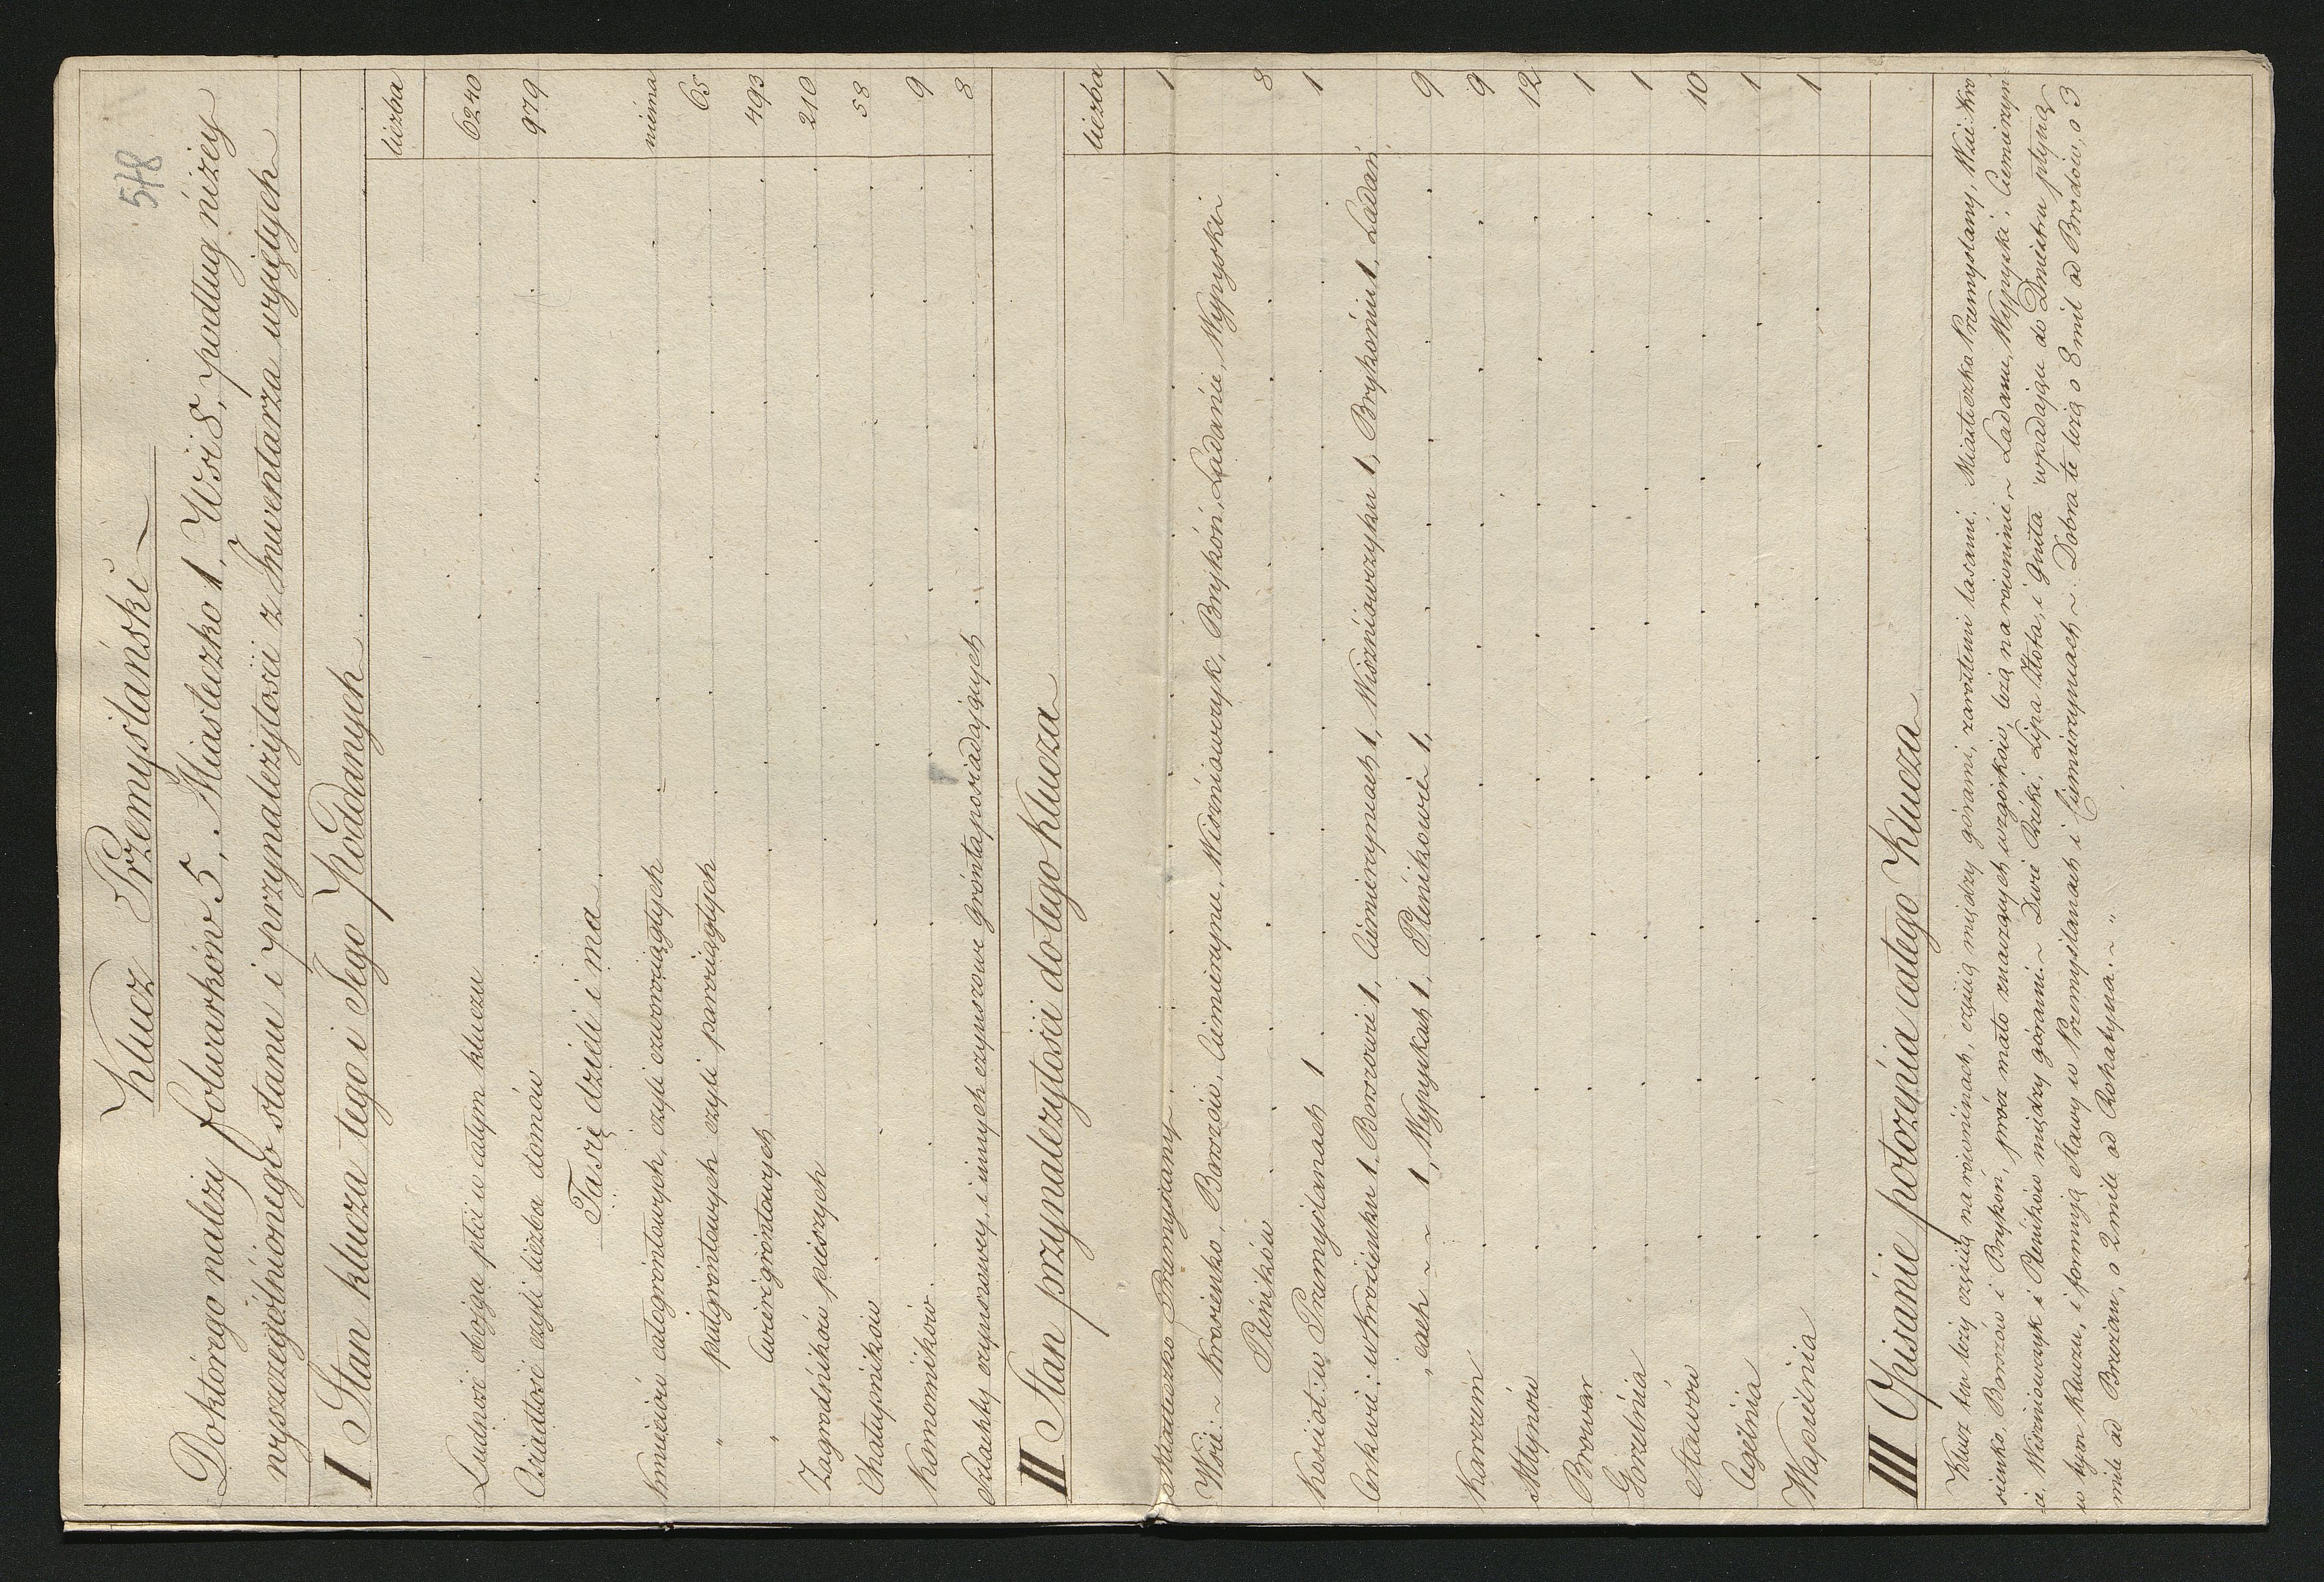 5/8
Klucz Przemyslański
Doktórego nalezy folwarków 5, Miasteczko 1, Wsi 8, podług niżey
wyszczególnionego stanu i przynależytosci z Inwentarza wyjętych
I Stan klucza tego i Jego Poddanych
liczba
Ludnośi obojga płci w całym kluczu 6240
Osiadłosi czyli liczba domów 979
Ta się dzieli i ma
Kmieciów całogróntowych, czyli czworociągłych niema
" pułgróntowych czyli parociągłych 65
" Cwiercigróntowych 493
Zagrodników pieszych 210
Chałupników 58
Komorników 9
Szlachty czynszowey, i innych czynszowe grónta posiadających 8
II Stan przynależytości do tego Klucza
liczba
Miasteczko Przemyslany 1
Wsie ~ Krosienko, Borszów, Ciemierzynce, Wiszniowczyk, Brykoń, Ladańce, Wypyski
Pleników 8
Kosciół: w Przemyslanach 1 1
Cerkwi: w Krosienku 1, Borszowie 1, Ciemierzyncach 1, Wiszniowczyku 1, Brykoniu 1, Ladań
cach ~ ~ 1, Wypyskach 1, Plenikowie 1, 9
Karczem 9
Młynów 12
Browar 1
Gorzelnia 1
Stawów 10
Cegielnia 1
Wapielnia 1
III Opisanie położenia całego Klucza
Klucz ten leży częścią na rowninach, częścią między górami, zarosłemi lasami. Miasteczko Przemyslany, Wsie Kro
sienko, Borszów i Brykoń, prócz mało znaczących wzgórków, leżą na rowninie ~ Ladańce, Wypyski, Ciemierzyn
ce, Wiszniowczyk i Pleników między górami. ~ Dwie Rzéki, Lipa Złota, i Gniła wpadające do Dniestru płyną
w tym Kluczu, i formują stawy w Przemyslanach i Ciemierzyncach ~ Dobra te leżą o 8 mil od Brodów, o 3
mile od Brzeżan, o 2 mile od Rohatyna. ~ "